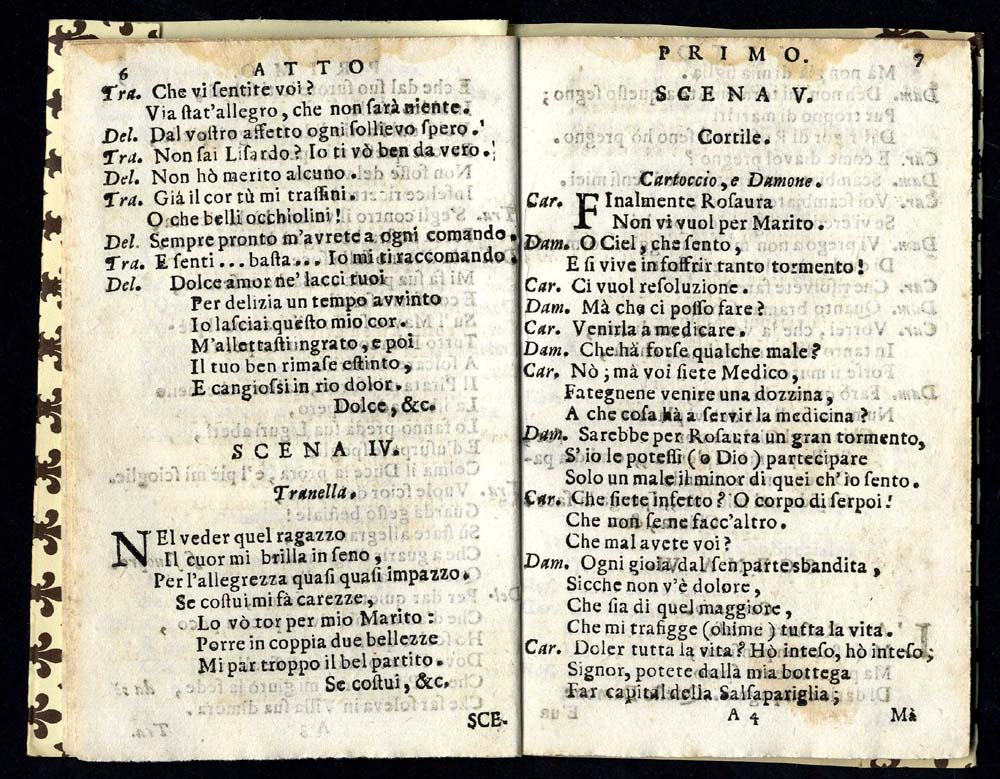 6
ATTO
Tra. Che vi ſentite voi?
Via ſtat'allegro, che non ſarà niente.
Del. Dal voſtro affetto ogni ſollievo ſpero.
Tra. Non ſai Liſardo? Io ti vò ben da vero.
Del. Non hò merito alcuno.
Tra. Giá il cor tù mi traſſini.
O che belli occhiolini!
Del. Sempre pronto m'avrete a ogni comando.
Tra. E ſenti... baſta... Io mi ti raccomando.
Del. Dolce amor ne' lacci tuoi
Per delizia un tempo avvinto
Io laſciai queſto mio cor.
M'allettaſti ingrato, e poi
Il tuo ben rimaſe eſtinto,
E cangioſſi in rio dolor.
Dolce, &c.
SCENA IV.
Tranella.
NEl veder quel ragazzo
Il cuor mi brilla in ſeno,
Per l'allegrezza quaſi quaſi impazzo.
Se coſtui mi fà carezze,
Lo vò tor per mio Marito:
Porre in coppia due bellezze
Mi par troppo il bel partito.
Se coſtui, &c.
SCE-
PRIMO.
7
SCENA V.
Cortile.
Cartoccio, e Damone.
Car. FInalmente Roſaura
Non vi vuol per Marito.
Dam. O Ciel, che ſento,
E ſi vive in ſoffrir tanto tormento!
Car. Ci vuol reſoluzione.
Dam. Mà che ci poſſo fare?
Car. Venirla à medicare.
Dam. Che hà forſe qualche male?
Car. Nò; mà voi ſiete Medico,
Fategnene venire una dozzina,
A che coſa hà à ſervir la medicina?
Dam. Sarebbe per Roſaura un gran tormento,
S'io le poteſſi (o Dio) partecipare
Solo un male il minor di quei ch'io ſento.
Car. Che ſiete infetto? O corpo di ſerpoi!
Che non ſe ne facc'altro.
Che mal avete voi?
Dam. Ogni gioia dal ſen parte sbandita,
Sicche non v'è dolore,
Che ſia di quel maggiore,
Che mi trafigge (ohime) tutta la vita.
Car. Doler tutta la vita? Hò inteſo, hò inteſo;
Signor, potete dalla mia bottega
Far capital della Salſapariglia;
A 4
Mà